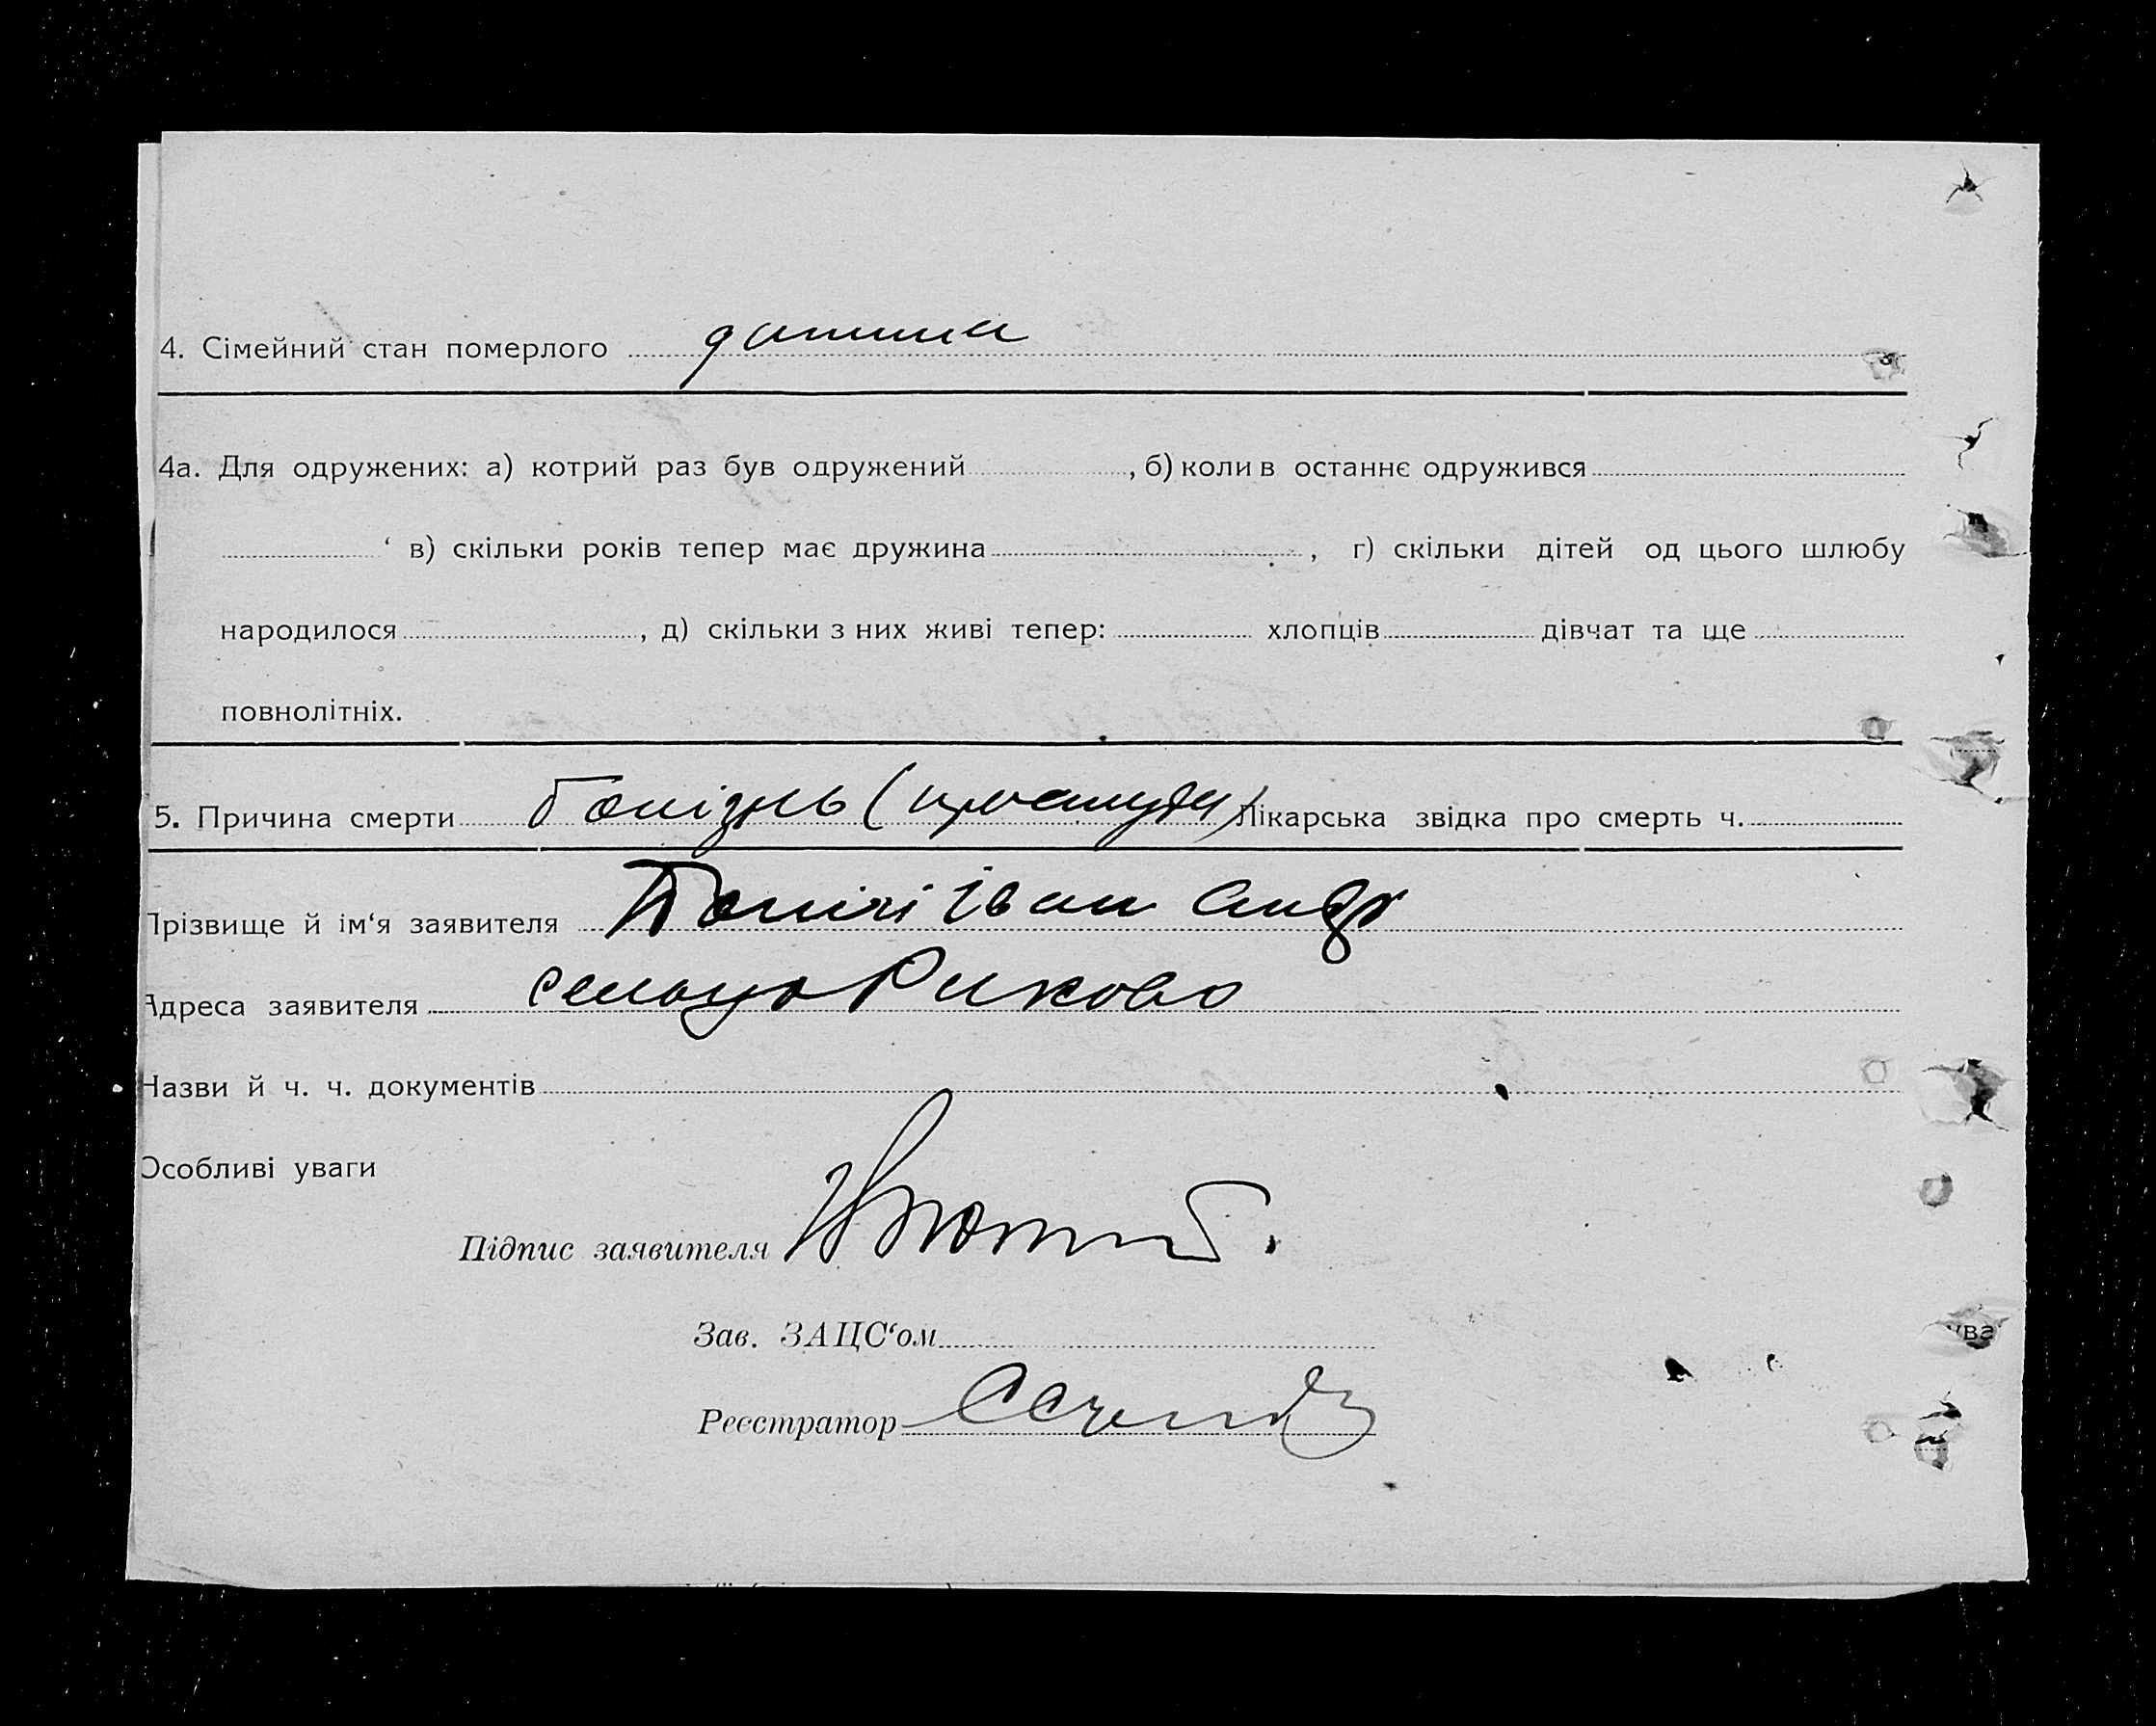 4. Сімейний стан померлого дитина
4а. Для одружених: а) котрий раз був одружений , б) коли в останнє одружився
‘ в) скільки років тепер має дружина , г) скільки дітей од цього шлюбу
народилося , д) скільки з них живі тепер: хлопців дівчат та ще
повнолітніх.
5. Причина смерти болізнь (простуда) Лікарська звідка про смерть ч.
Прізвище й ім‘я заявителя Іван Андр
Адреса заявителя селище Риково
Назви й ч. ч. документів
Особливі уваги
Підпис заявителя
Зав. ЗАЦС‘ом
Реєстратор